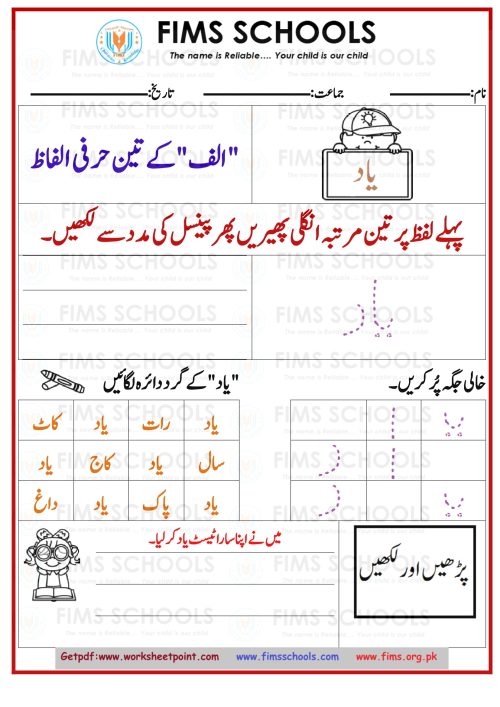 FIMS SCHOOLS
The name is Reliable.... Your child is our child
نام: جماعت: تاریخ:
یاد
"الف" کے تین حرفی الفاظ
پہلے لفظ پر تین مرتبہ انگلی پھیریں پھر پینسل کی مدد سے لکھیں۔
یاد
خالی جگہ پُر کریں۔
"یاد" کے گرد دائرہ لگائیں
یـ ا
ا د
یـ د
یاد رات یاد کاٹ
سال یاد کاج یاد
یاد پاک یاد داغ
پڑھیں اور لکھیں
میں نے اپنا سارا ٹیسٹ یاد کر لیا۔
Getpdf:www.worksheetpoint.com www.fimsschools.com www.fims.org.pk